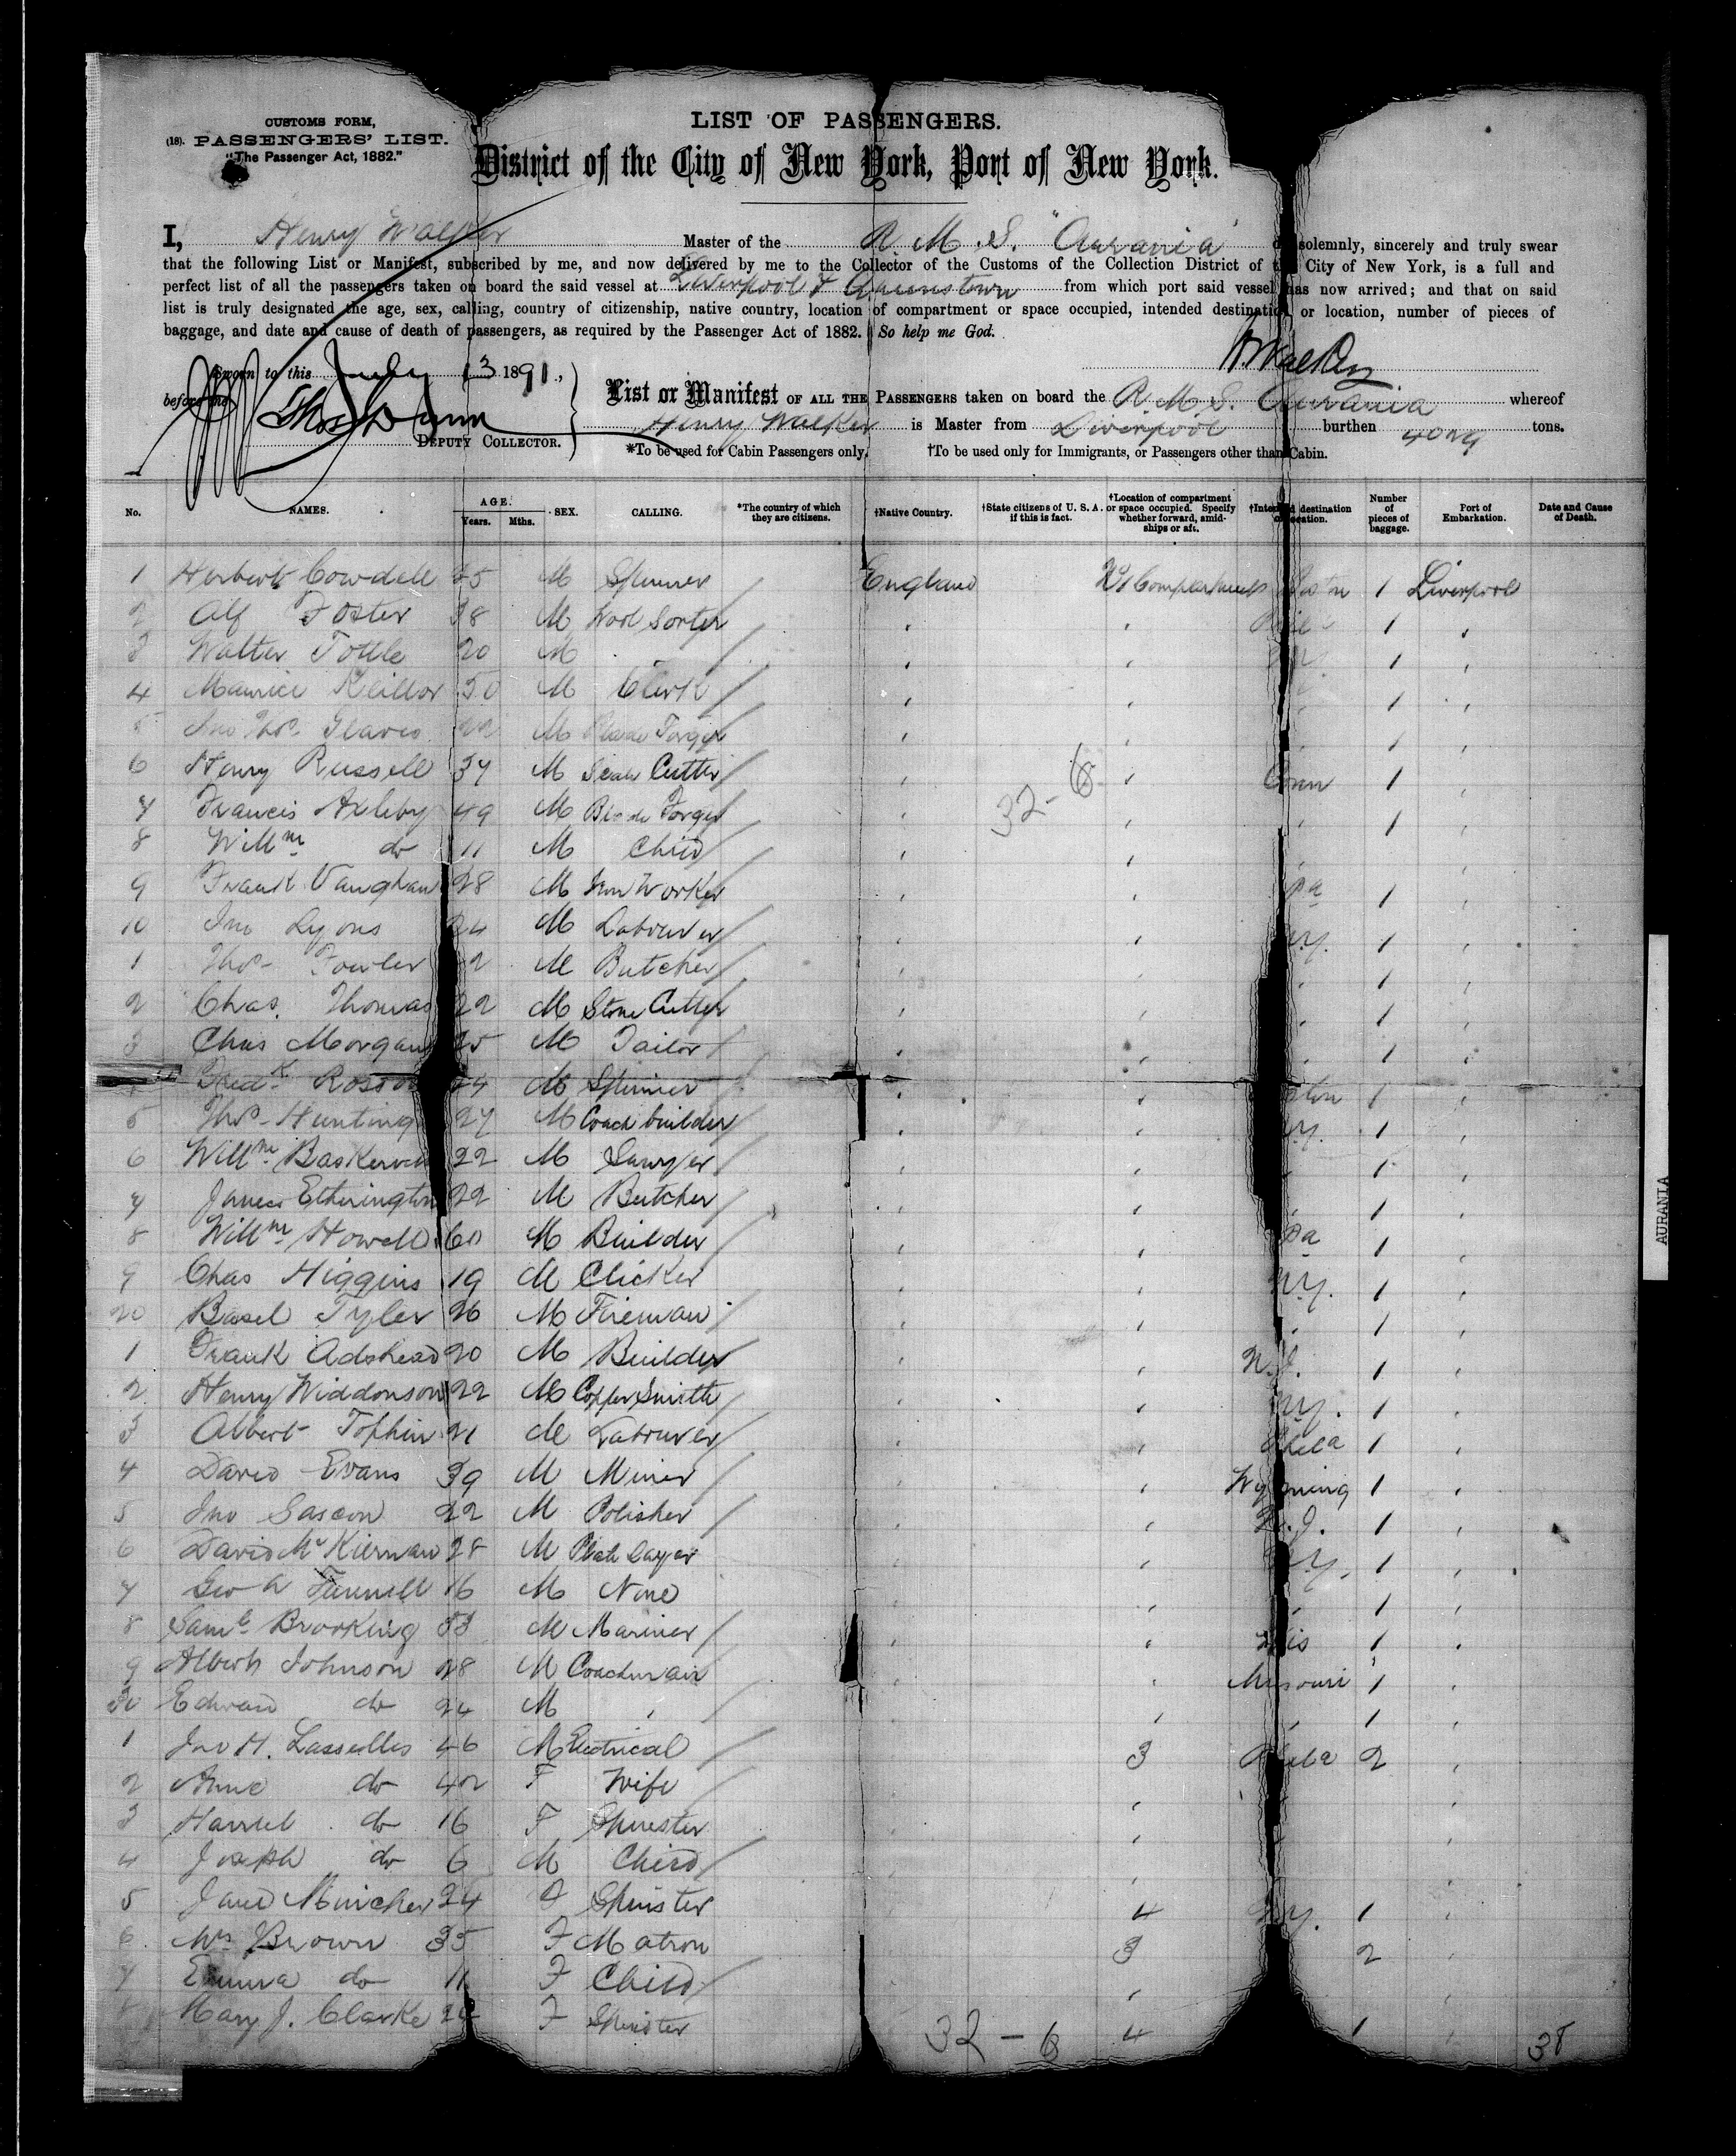 CUSTOMS FORM,
(18). PASSENGERS' LIST.
"The Passenger Act, 1882."
LIST OF PASSENGERS.
District of the City of New York, Port of New York.
I, Henry Walker Master of the R. M. S. "Aurania" do solemnly, sincerely and truly swear
that the following List or Manifest, subscribed by me, and now delivered by me to the Collector of the Customs of the Collection District of the City of New York, is a full and
perfect list of all the passengers taken on board the said vessel at Liverpool & Queenstown from which port said vessel has now arrived; and that on said
list is truly designated the age, sex, calling, country of citizenship, native country, location of compartment or space occupied, intended destination or location, number of pieces of
baggage, and date and cause of death of passengers, as required by the Passenger Act of 1882. So help me God.
H Walker
Sworn to this July 13 1891,
before me
DEPUTY COLLECTOR.
List or Manifest OF ALL THE PASSENGERS taken on board the R. M. S. Aurania whereof
Henry Walker is Master from Liverpool burthen 4029 tons.
*To be used for Cabin Passengers only. †To be used only for Immigrants, or Passengers other than Cabin.
No. NAMES. AGE. Years. Mths. SEX. CALLING. *The country of which they are citizens. †Native Country. †State citizens of U. S. A. if this is fact. †Location of compartment or space occupied. Specify whether forward, amidships or aft. †Intended destination or location. Number of pieces of baggage. Port of Embarkation. Date and Cause of Death.
1 Herbert Cowdell 25 M Spinner England No 1 Compartment Boston 1 Liverpool
2 Alf Foster 38 M Wool Sorter 1
3 Walter Tottle 20 M 1
4 Maurice 50 M Clerk 1
5 Jno Thos 22 M Blade Forger 1
6 Henry Russell 37 M Scale Cutter Conn 1
32-6
7 Francis Axleby 49 M Blade Forger 1
8 Willm do 11 M Child
9 Frank Vaughan 28 M Iron Worker Pa 1
10 Jno Lyons 24 M Labourer N.Y. 1
1 Thos Fowler M Butcher 1
2 Chas. Thomas 22 M Stone Cutter 1
3 Chas Morgan 25 M Tailor 1
Fredk 24 M Spinner Boston 1
5 Thos Hunting 27 M Coach builder N.Y. 1
6 Willm 22 M Sawyer 1
7 James Etherington 22 M Butcher 1
8 Willm Howell 60 M Builder Pa 1
9 Chas Higgins 19 M Clicker N.Y. 1
20 Basel Tyler 26 M Fireman 1
1 Frank Adshead 20 M Builder N.J. 1
2 Henry Widdonson 22 M Copper Smith N.Y. 1
3 Albert Tophin 21 M Labourer Phila 1
4 David Evans 39 M Miner Wyoming 1
5 Jno Sascon 22 M Polisher N.J. 1
6 David McKiernan 28 M Plate Layer N.Y. 1
7 Geo A 16 M None 1
8 Saml Brooking 33 M Mariner Wis 1
9 Albert Johnson 28 M Coachman Missouri 1
30 Edward do 24 M 1
1 Jno H. Lasselles 46 M Electrical 3 Phila 2
2 Anne do 42 F Wife
3 Harriet do 16 F Spinster
4 Joseph do 6 M Child
5 Jane Mincher 24 F Spinster 4 N.Y. 1
6 Mrs Brown 35 F Matron 3 2
7 Emma do 11 F Child
8 Mary J. Clarke F Spinster 4 1
32 - 6
38
AURANIA